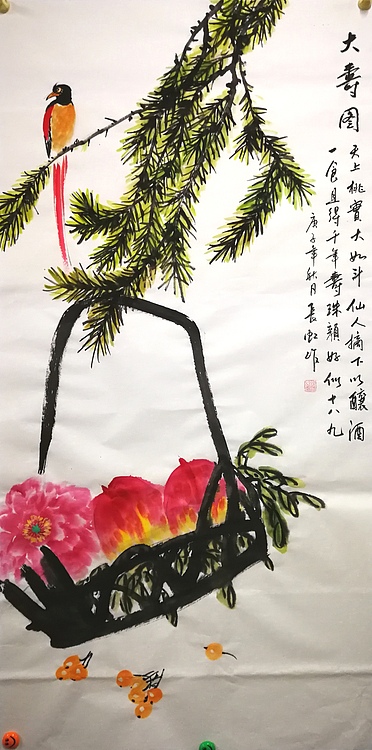 大寿图
天上桃实大如斗仙人摘下以酿酒
一食且得千年寿珠颜好似十八九
庚子年秋月长虹作